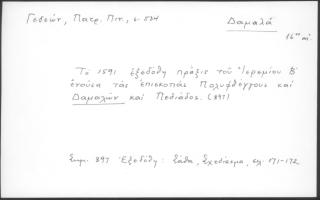 Γεδεών, Πατρ. Πιν., σ. 524 Δαμαλᾶ
16ος αἰ.
Τὸ 1591 ἐξεδόθη πρᾶξις τοῦ Ἱερεμίου Β΄
ἑνοῦσα τὰς ἐπισκοπὰς Πολυφθέγγους καὶ
Δαμαλῶν καὶ Πεδιάδος. (897)
Σημ. 897 Ἐξεδόθη: Σάθα, Σχεδίασμα, σελ. 171-172